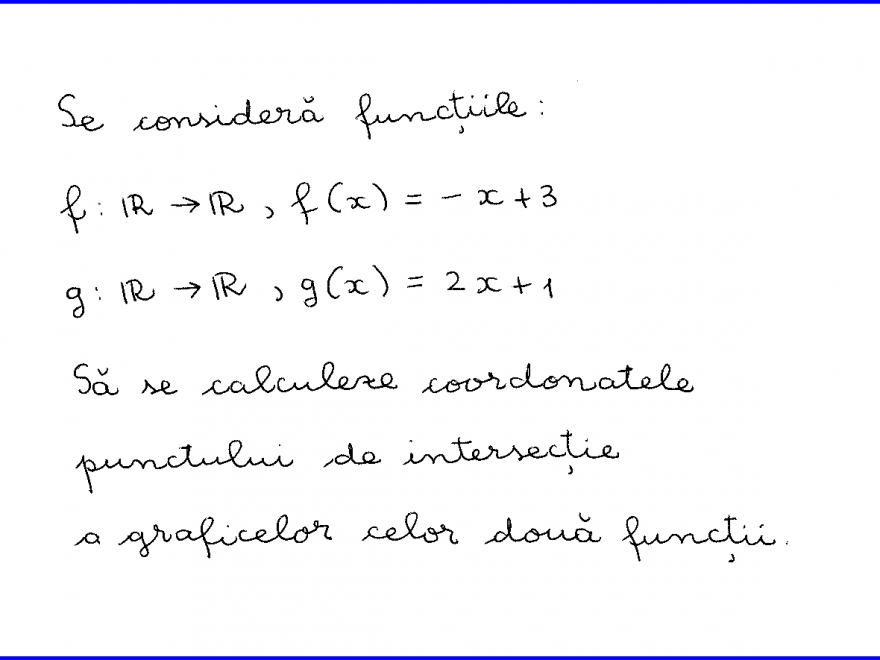 Se consideră funcțiile:
f: ℝ → ℝ, f(x) = -x+3
g: ℝ → ℝ, g(x) = 2x+1
Să se calculeze coordonatele
punctului de intersecție
a graficelor celor două funcții.